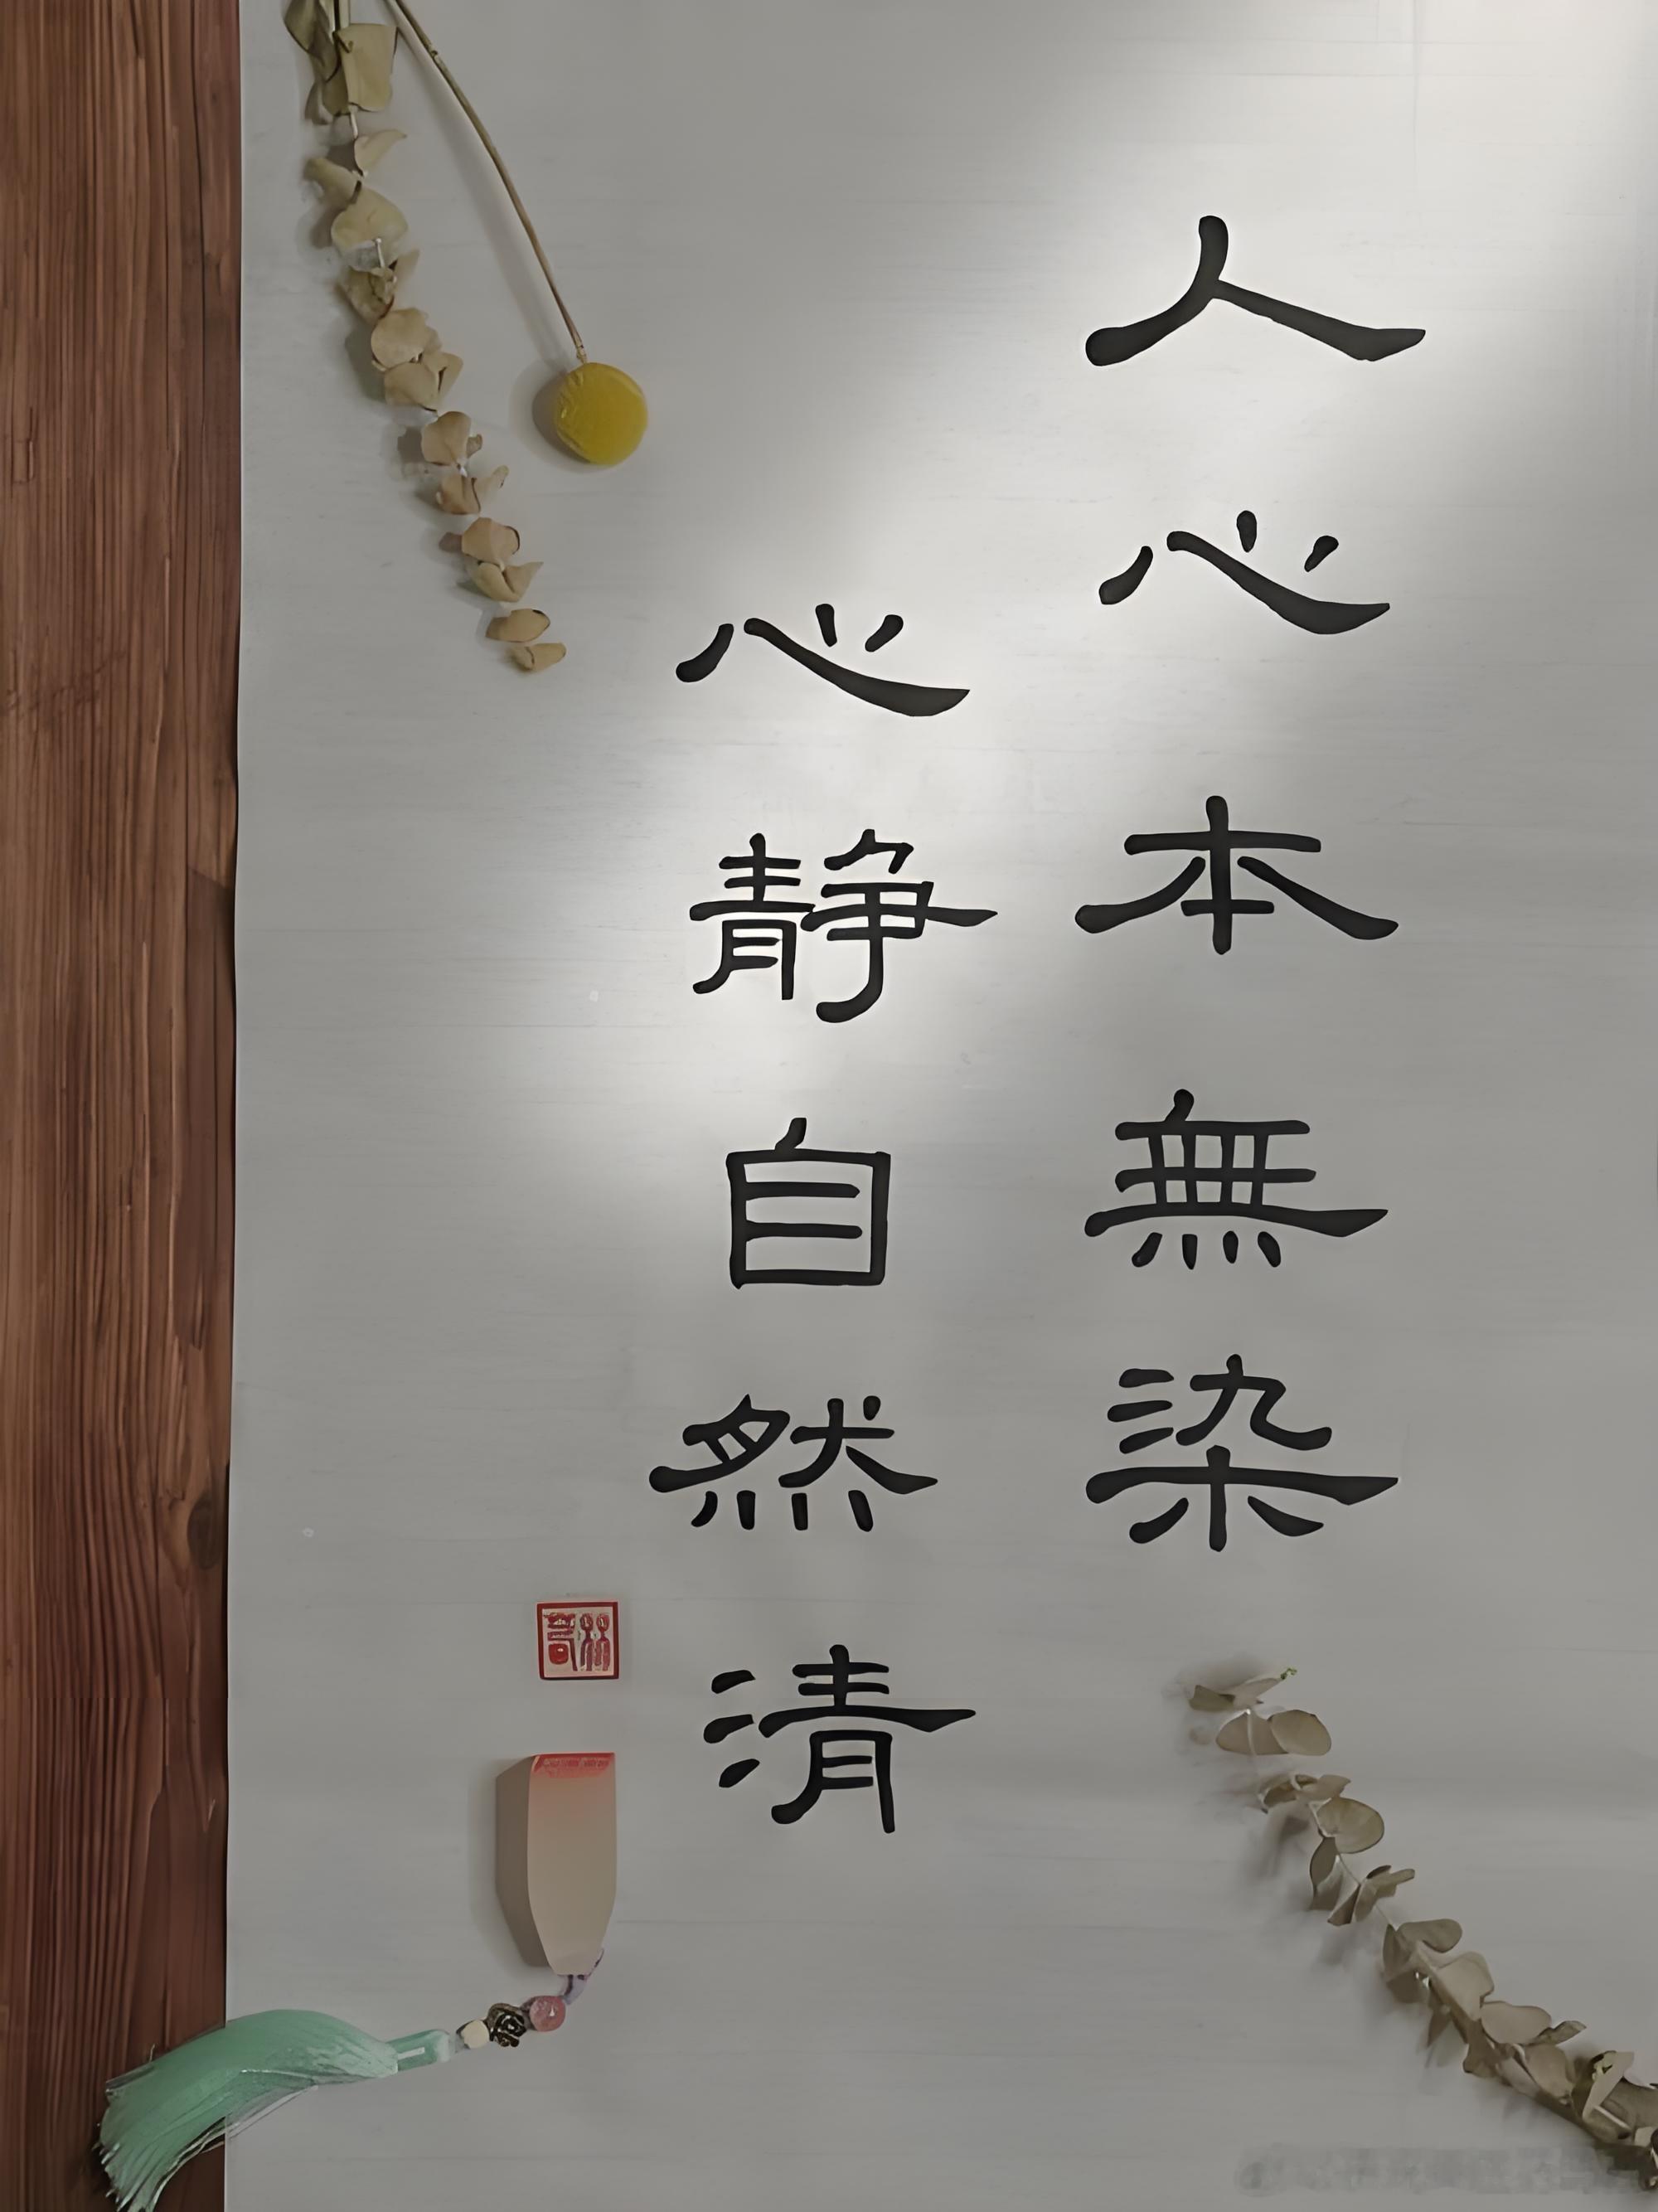 人心本無染
心静自然清